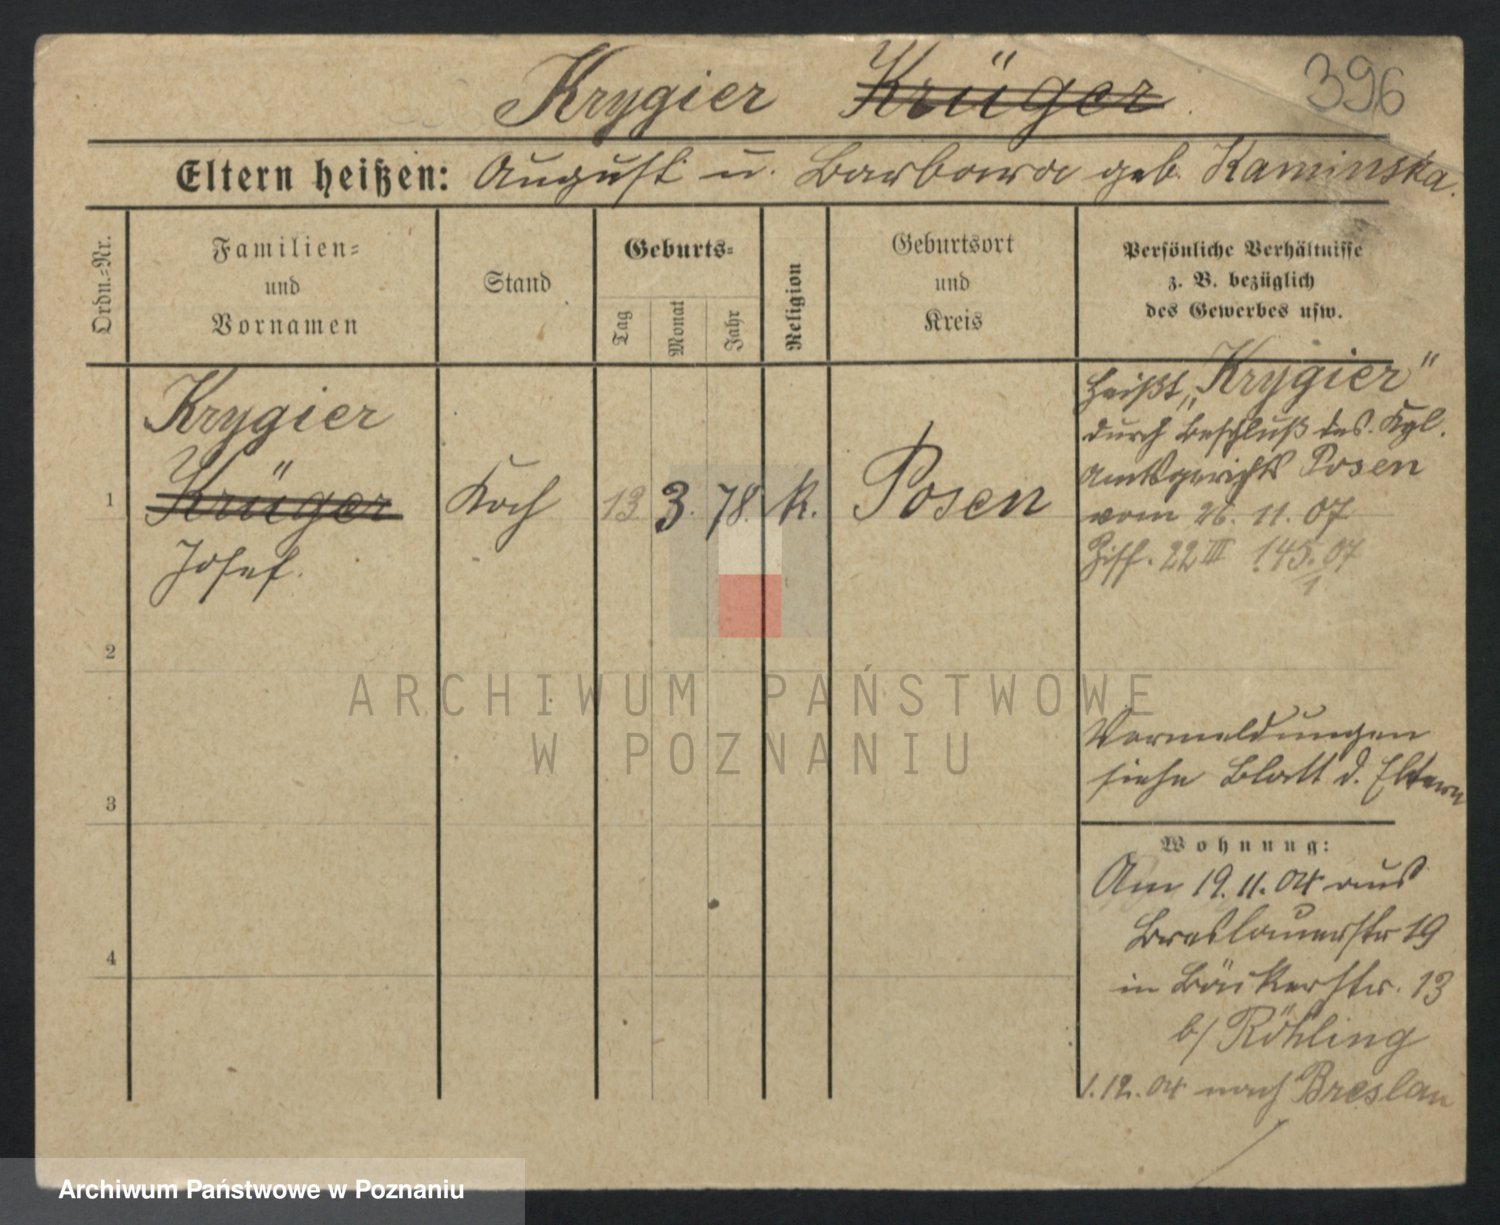 Krygier Krüger
396
Eltern heißen: August u. Barbara geb. Kaminska.
Ordn.-Nr.
Familien- und Vornamen
Stand
Geburts-
Tag
Monat
Jahr
Religion
Geburtsort und Kreis
Persönliche Verhältnisse
z. B. bezüglich
des Gewerbes usw.
Krygier
1 Krüger Koch 13 3. 78. k. Posen
Josef.
heißt „Krygier“
durch Beschluß des Kgl.
Amtsgerichts Posen
vom 26. 11. 07
Ziff. 22 III 145.07
1
2
3
4
Vormeldungen
siehe Blatt d. Eltern
Wohnung:
Am 19.11.04 aus
Breslauerstr 19
in Bäckerstr. 13
b/ Röhling
1.12.04 nach Breslau
ARCHIWUM PAŃSTWOWE
W POZNANIU
Archiwum Państwowe w Poznaniu